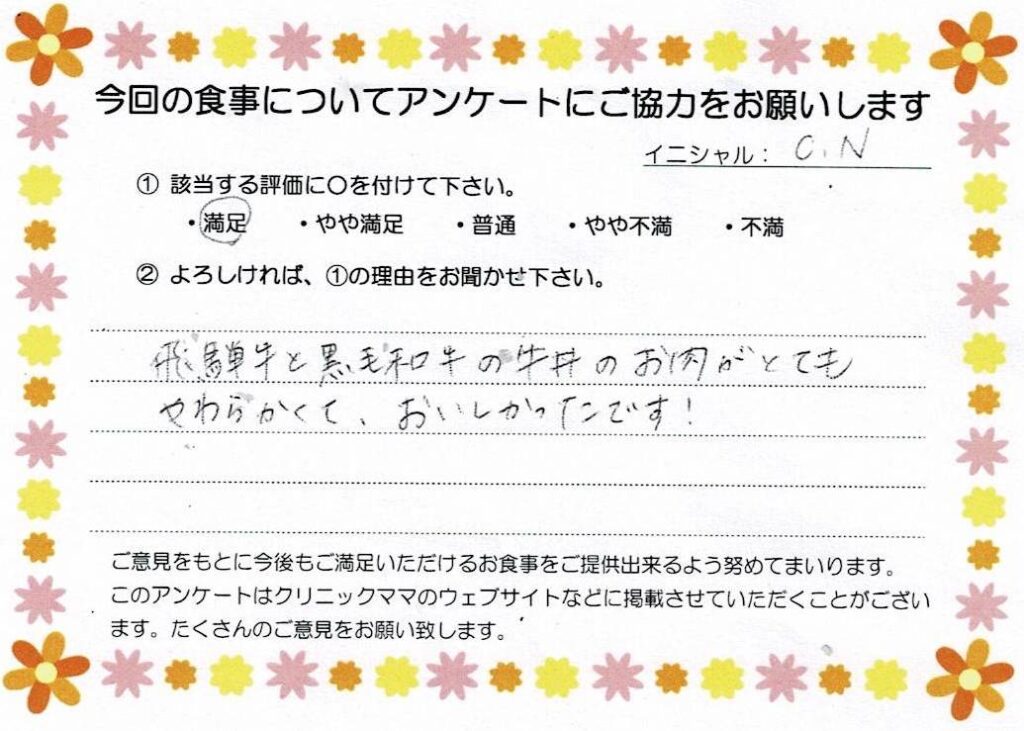 今回の食事についてアンケートにご協力をお願いします
イニシャル： C.N
① 該当する評価に○を付けて下さい。
・満足 ・やや満足 ・普通 ・やや不満 ・不満
② よろしければ、①の理由をお聞かせ下さい。
飛騨牛と黒毛和牛の牛丼のお肉がとても
やわらかくて、おいしかったです！
ご意見をもとに今後もご満足いただけるお食事をご提供出来るよう努めてまいります。
このアンケートはクリニックママのウェブサイトなどに掲載させていただくことがござい
ます。たくさんのご意見をお願い致します。